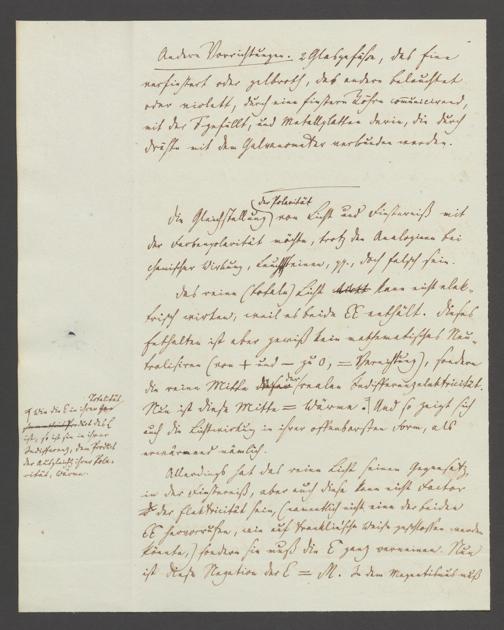 Andere Vorrichtungen. 2 Glasgefäße, das eine
verfinstert oder gelbroth, das andere beleuchtet
oder violett, durch eine finstere Röhre communicirend,
mit der F gefüllt, und Metallplatten darin, die durch
Drähte mit dem Galvanometer verbunden werden.
der Polarität
Die Gleichstellung von Licht und Finsterniß mit
der Farbenpolarität möchte, trotz den Analogieen bei
chemischer Wirkung, Leuchtsteinen, pp., doch falsch sein.
Das reine (totale) Licht kann nicht elek-
trisch wirken, weil es beide EE enthält. Dieses
Enthalten ist aber gewiß kein mathematisches Neu-
tralisiren (von + und — zu 0, = Vernichtung), sondern
die reine Mitte der realen Indifferenzelektricität.
Nun ist diese Mitte = Wärme. Und so zeigt sich
auch die Lichtwirkung in ihrer offenbarsten Form, als
erwärmend nämlich.
Totalität
Wie die E in ihrer
Product des L
ist, so ist sie in ihrer
Indifferenz, dem Product
der Ausgleichung ihrer Pola-
rität, Wärme.
Allerdings hat das reine Licht seinen Gegensatz
in der Finsterniß, aber auch diese kann nicht Factor
der Elektricität sein, (namentlich nicht eine der beiden
EE hervorrufen, wie auf Franklinsche Weise geschlossen werden
könnte,) sondern sie muß die E ganz verneinen. Nun
ist diese Negation der E = M. In dem Magnetismus muß